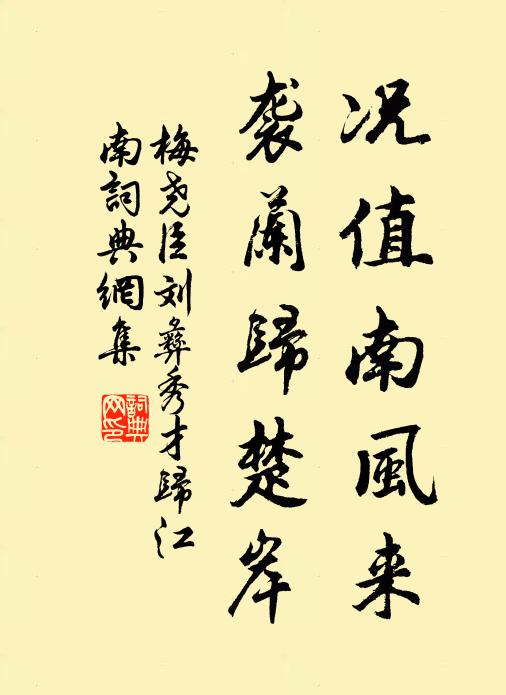 况值南風来
袭蘭歸楚岸
梅尧臣刘彝秀才歸江
南詞典網集
詞典
网印